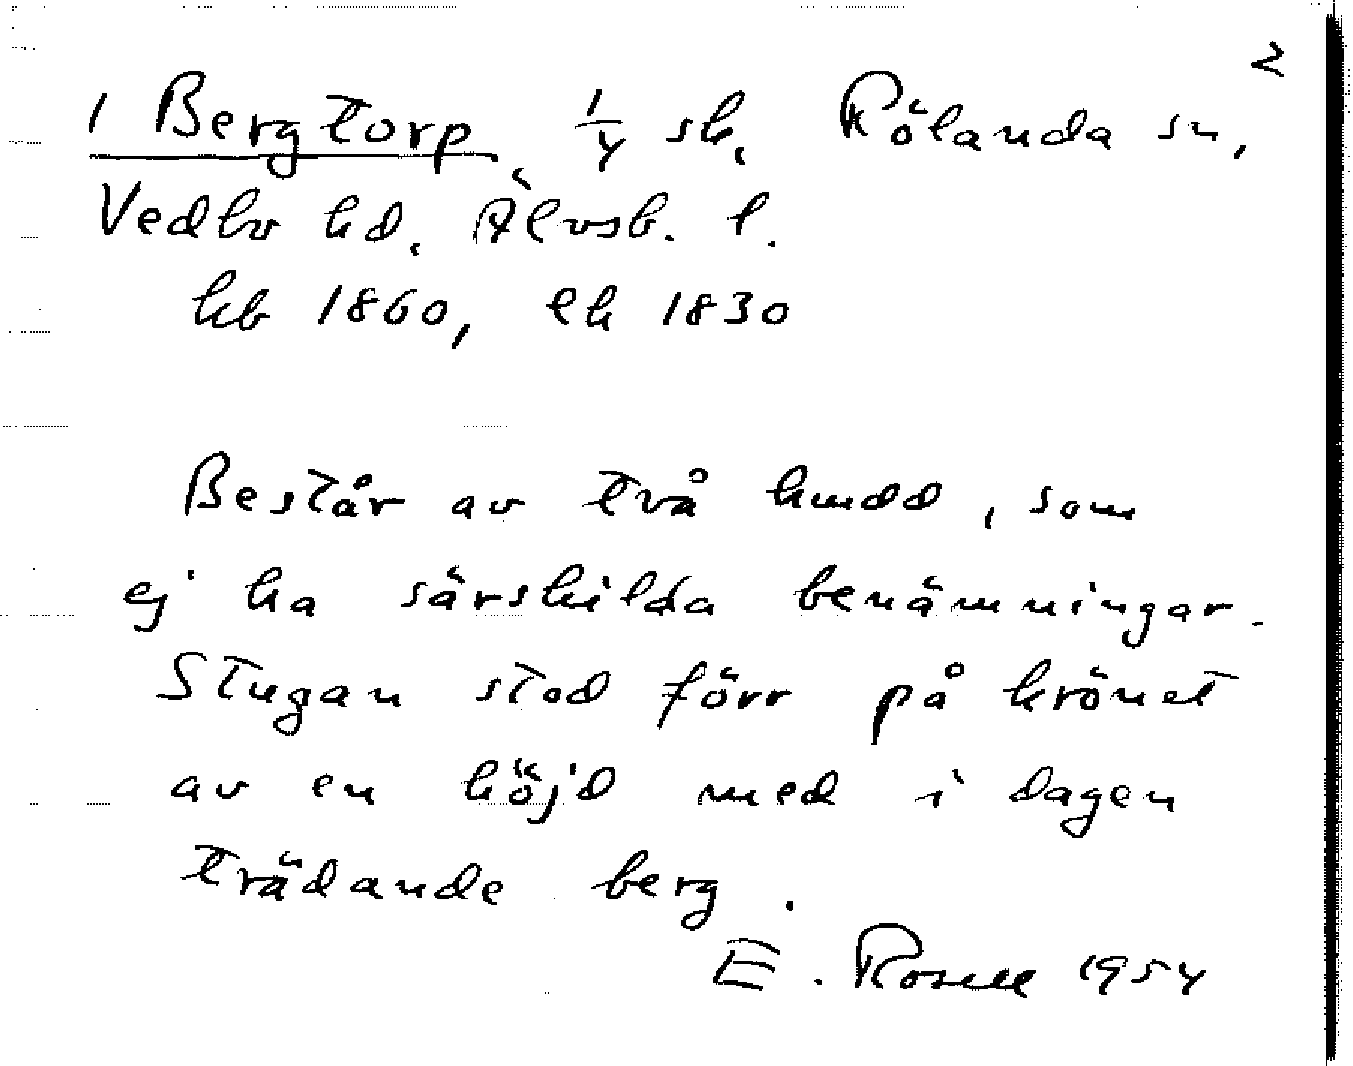 2
1 Bergtorp, 1/4 sk. Rölanda sn,
Vedbo hd. Älvsb. l.
kb 1860, ek 1830
Består av två hmdd, som
ej ha särskilda benämningar.
Stugan stod förr på krönet
av en höjd med i dagen
trädande berg.
E. Rosell 1954